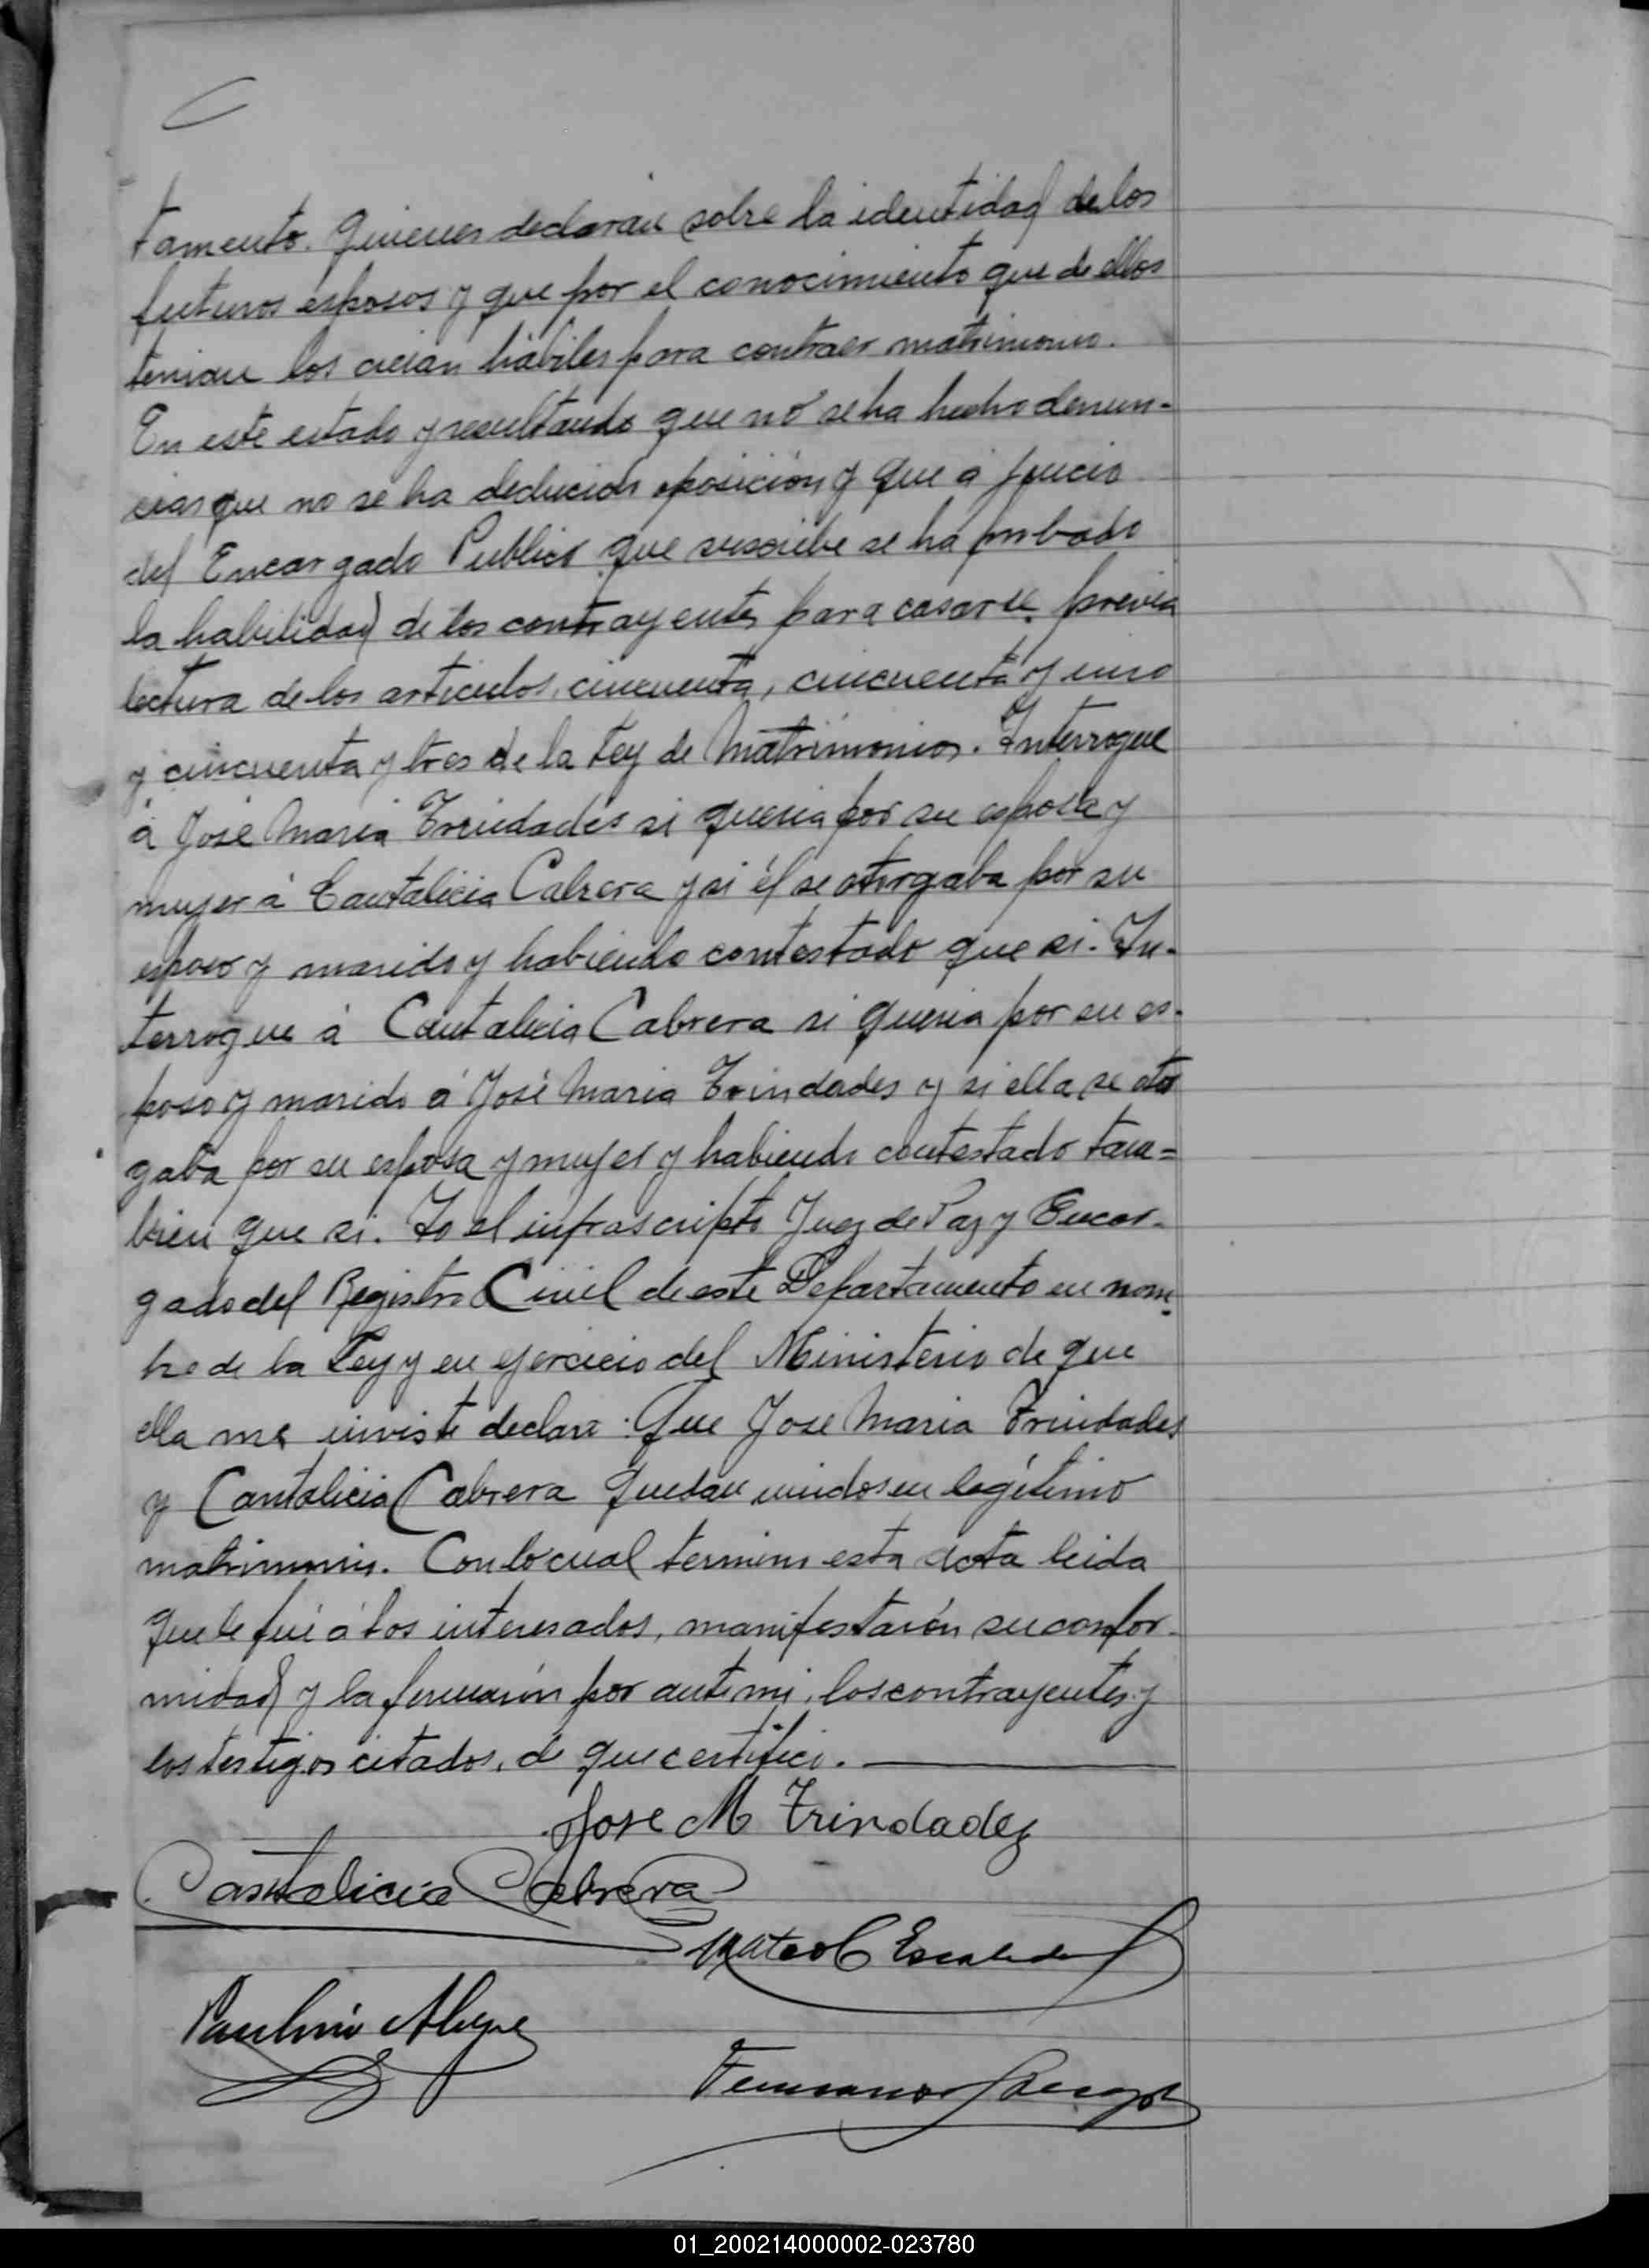 tamento. Quienes declaran sobre la identidad de los
futuros esposos y que por el conocimiento que de ellos
tenian los creian hábiles para contraer matrimonio.
En este estado y resultando que no se ha hecho denun-
cias que no se ha deducido oposición y que á juicio
del Encargado Publico que suscribe se ha probado
la habilidad de los contrayentes para casarse, previa
lectura de los articulos, cincuenta, cincuenta y uno
y cincuenta y tres de la Ley de Matrimonios. Interrogue
á José Maria Trindades si queria por su esposa y
mujer á Cantalicia Cabrera y si él se otorgaba por su
esposo y marido y habiendo contestado que si. In-
terrogue á Cantalicia Cabrera si queria por su es-
poso y marido á José Maria Trindades y si ella se otor
gaba por su esposa y mujer y habiendo contestado tam=
bien que si. Yo el infrascripto Juez de Paz y Encar-
gado del Registro Civil de este Departamento en nom-
bre de la Ley y en ejercicio del Ministerio de que
ella me inviste declaro: Que Jose Maria Trindades
y Cantalicia Cabrera quedan unidos en legítimo
matrimonio. Con lo cual termino esta acta leida
que le fué á los interesados, manifestarón su confor-
midad y la firmarón por ante mi, los contrayentes y
los testigos citados, de que certifico.
Jose M Trindadez
Cantalicia Cabrera
Mateo C Escalada
Paulino Alegre
01_200214000002-023780